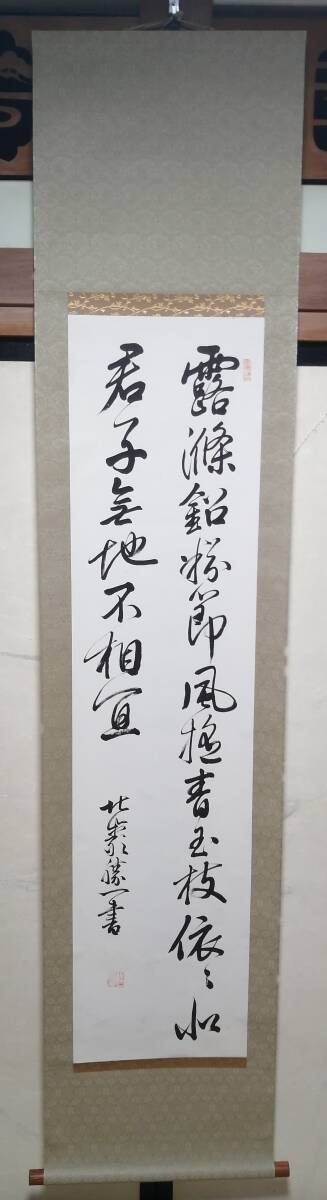 露滌鉛粉節風搖青玉枝依〻似
君子無地不相宜
勝一書